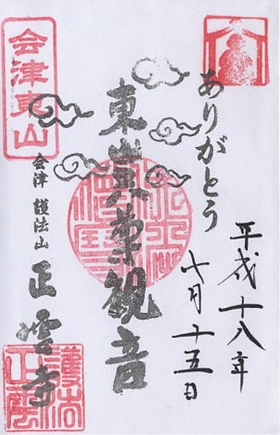 ありがとう
平成十八年
七月十五日
東山観音
会津東山
会津 護法山 正雲寺